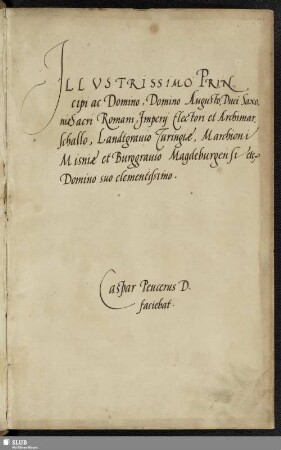 ILLVSTRISSIMO PRIN
cipi ac Domino, Domino Augusto, Duci Saxo,
niæ Sacri Romani, Imperij Electori et Archimar,
schallo, Landtgrauio Turingiæ, Marchioni
Misniæ et Burggrauio Magdeburgensi etc.
Domino suo clementissimo.
Caspar Peucerus D.
faciebat.
SLUB